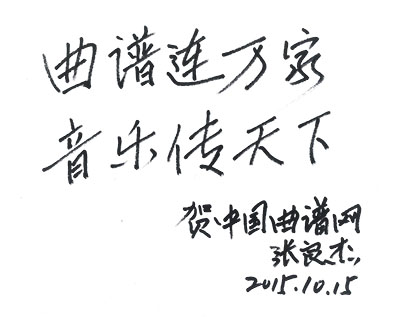 曲谱连万家
音乐传天下
贺中国曲谱网
张良杰
2015.10.15